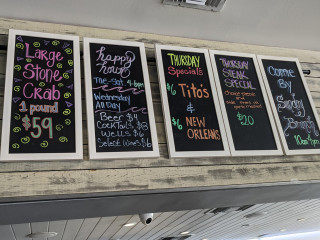 Large
Stone
Crab
1 pound
$59
happy
hour
Tue-Sat 4-6pm
Wednesday
All Day
Beer $4
Cocktails $8
Wells $6
Select Wines $6
THURSDAY
Specials
$6 Tito's
$6 & NEW
ORLEANS
THURSDAY
STEAK
SPECIAL
$20
Come
By
Sunday
Brunch